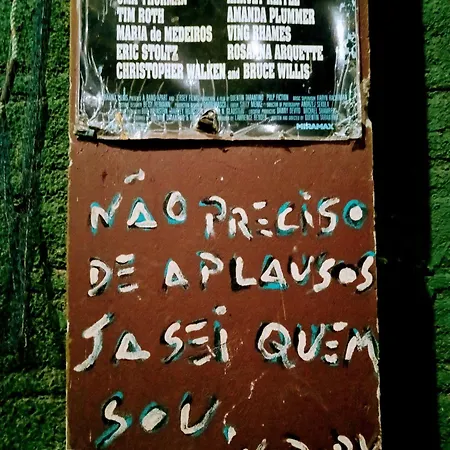 TIM ROTH AMANDA PLUMMER
MARIA de MEDEIROS VING RHAMES
ERIC STOLTZ ROSANNA ARQUETTE
CHRISTOPHER WALKEN and BRUCE WILLIS
MIRAMAX
NÃO PRECISO
DE APLAUSOS
JA SEI QUEM
SOU,